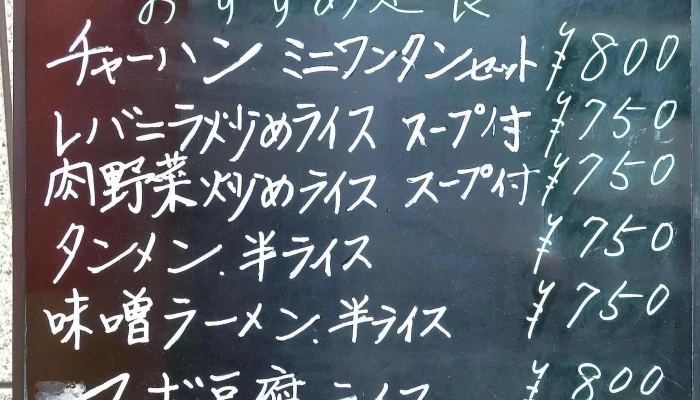 おすすめ定食
チャーハン ミニワンタンセット ¥800
レバニラ炒めライス スープ付 ¥750
肉野菜炒めライス スープ付 ¥750
タンメン.半ライス ¥750
味噌ラーメン.半ライス ¥750
マーボ豆腐 ライス ¥800